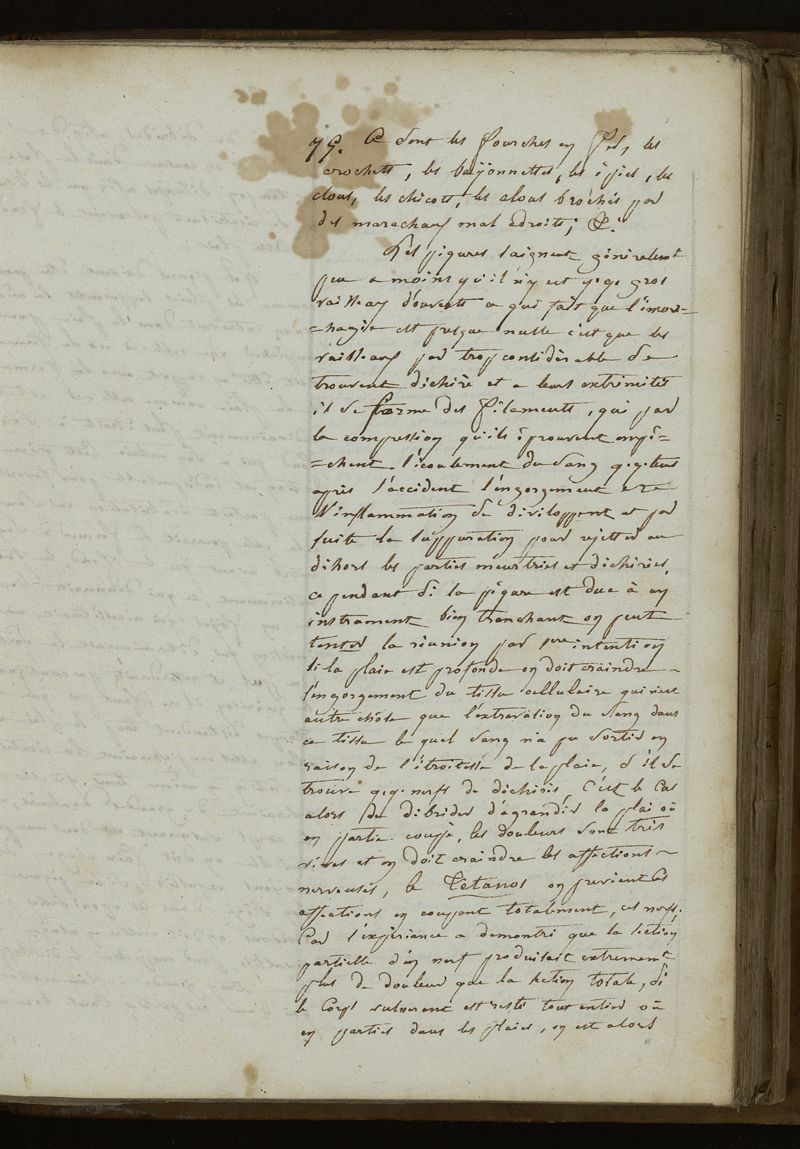 75. Ce sont les fourches en fer, les
crochets, les bayonnettes, les épies, les
clous, les chicots, les clous brochés par
des marechaux mal adroits; &.
Les piqures saignent généralemt
peu a moins qu'il n'y est q.q. gros
vaisseau d'ouvert a qui fait que l'imor=
=hagie est presque nulle c'est que les
vaisseaux par trop considérable se
trouvent dichiré et a leurs extrimités
il se forme des filaments, qui par
la compression qu'ils éprouvent empê=
=chent l'écoulement du sang q.q. tems
après l'accident l'engorgement et
l'inflammation se diviloppent et par
suite la suppuration pour rejetter au
dihors les parties meurtries et dichirées,
ce pendant si la piqure est due à un
instrument bien tranchant on peut
tenter la réunion par 1ere intention
Si la plaie est profonde on doit craindre
l'engorgement du tissu cellulaire qui n'est
autre chose que l'extravasion du sang dans
ce tissu le quel sang n'a pu sortir en
raison de l'étroitesse de la plaie, s'il se
trouve q.q. nerfs de dichirés, C'est le Cas
alors de dibrider d'agrandir la plai où
en partie coupé, les douleurs sont très
vives et on doit craindre les affections
nerveuses, le Tétanos on previent Ces
affections en coupant totalement, ces nerfs;
Car l'expèriance a demontré que la section
partielle d'un nerf produisait extrememt
plus de douleur que la section totale, si
le Corps vulnerent est resté tout entier où
en parties dans les plaies, on est alors